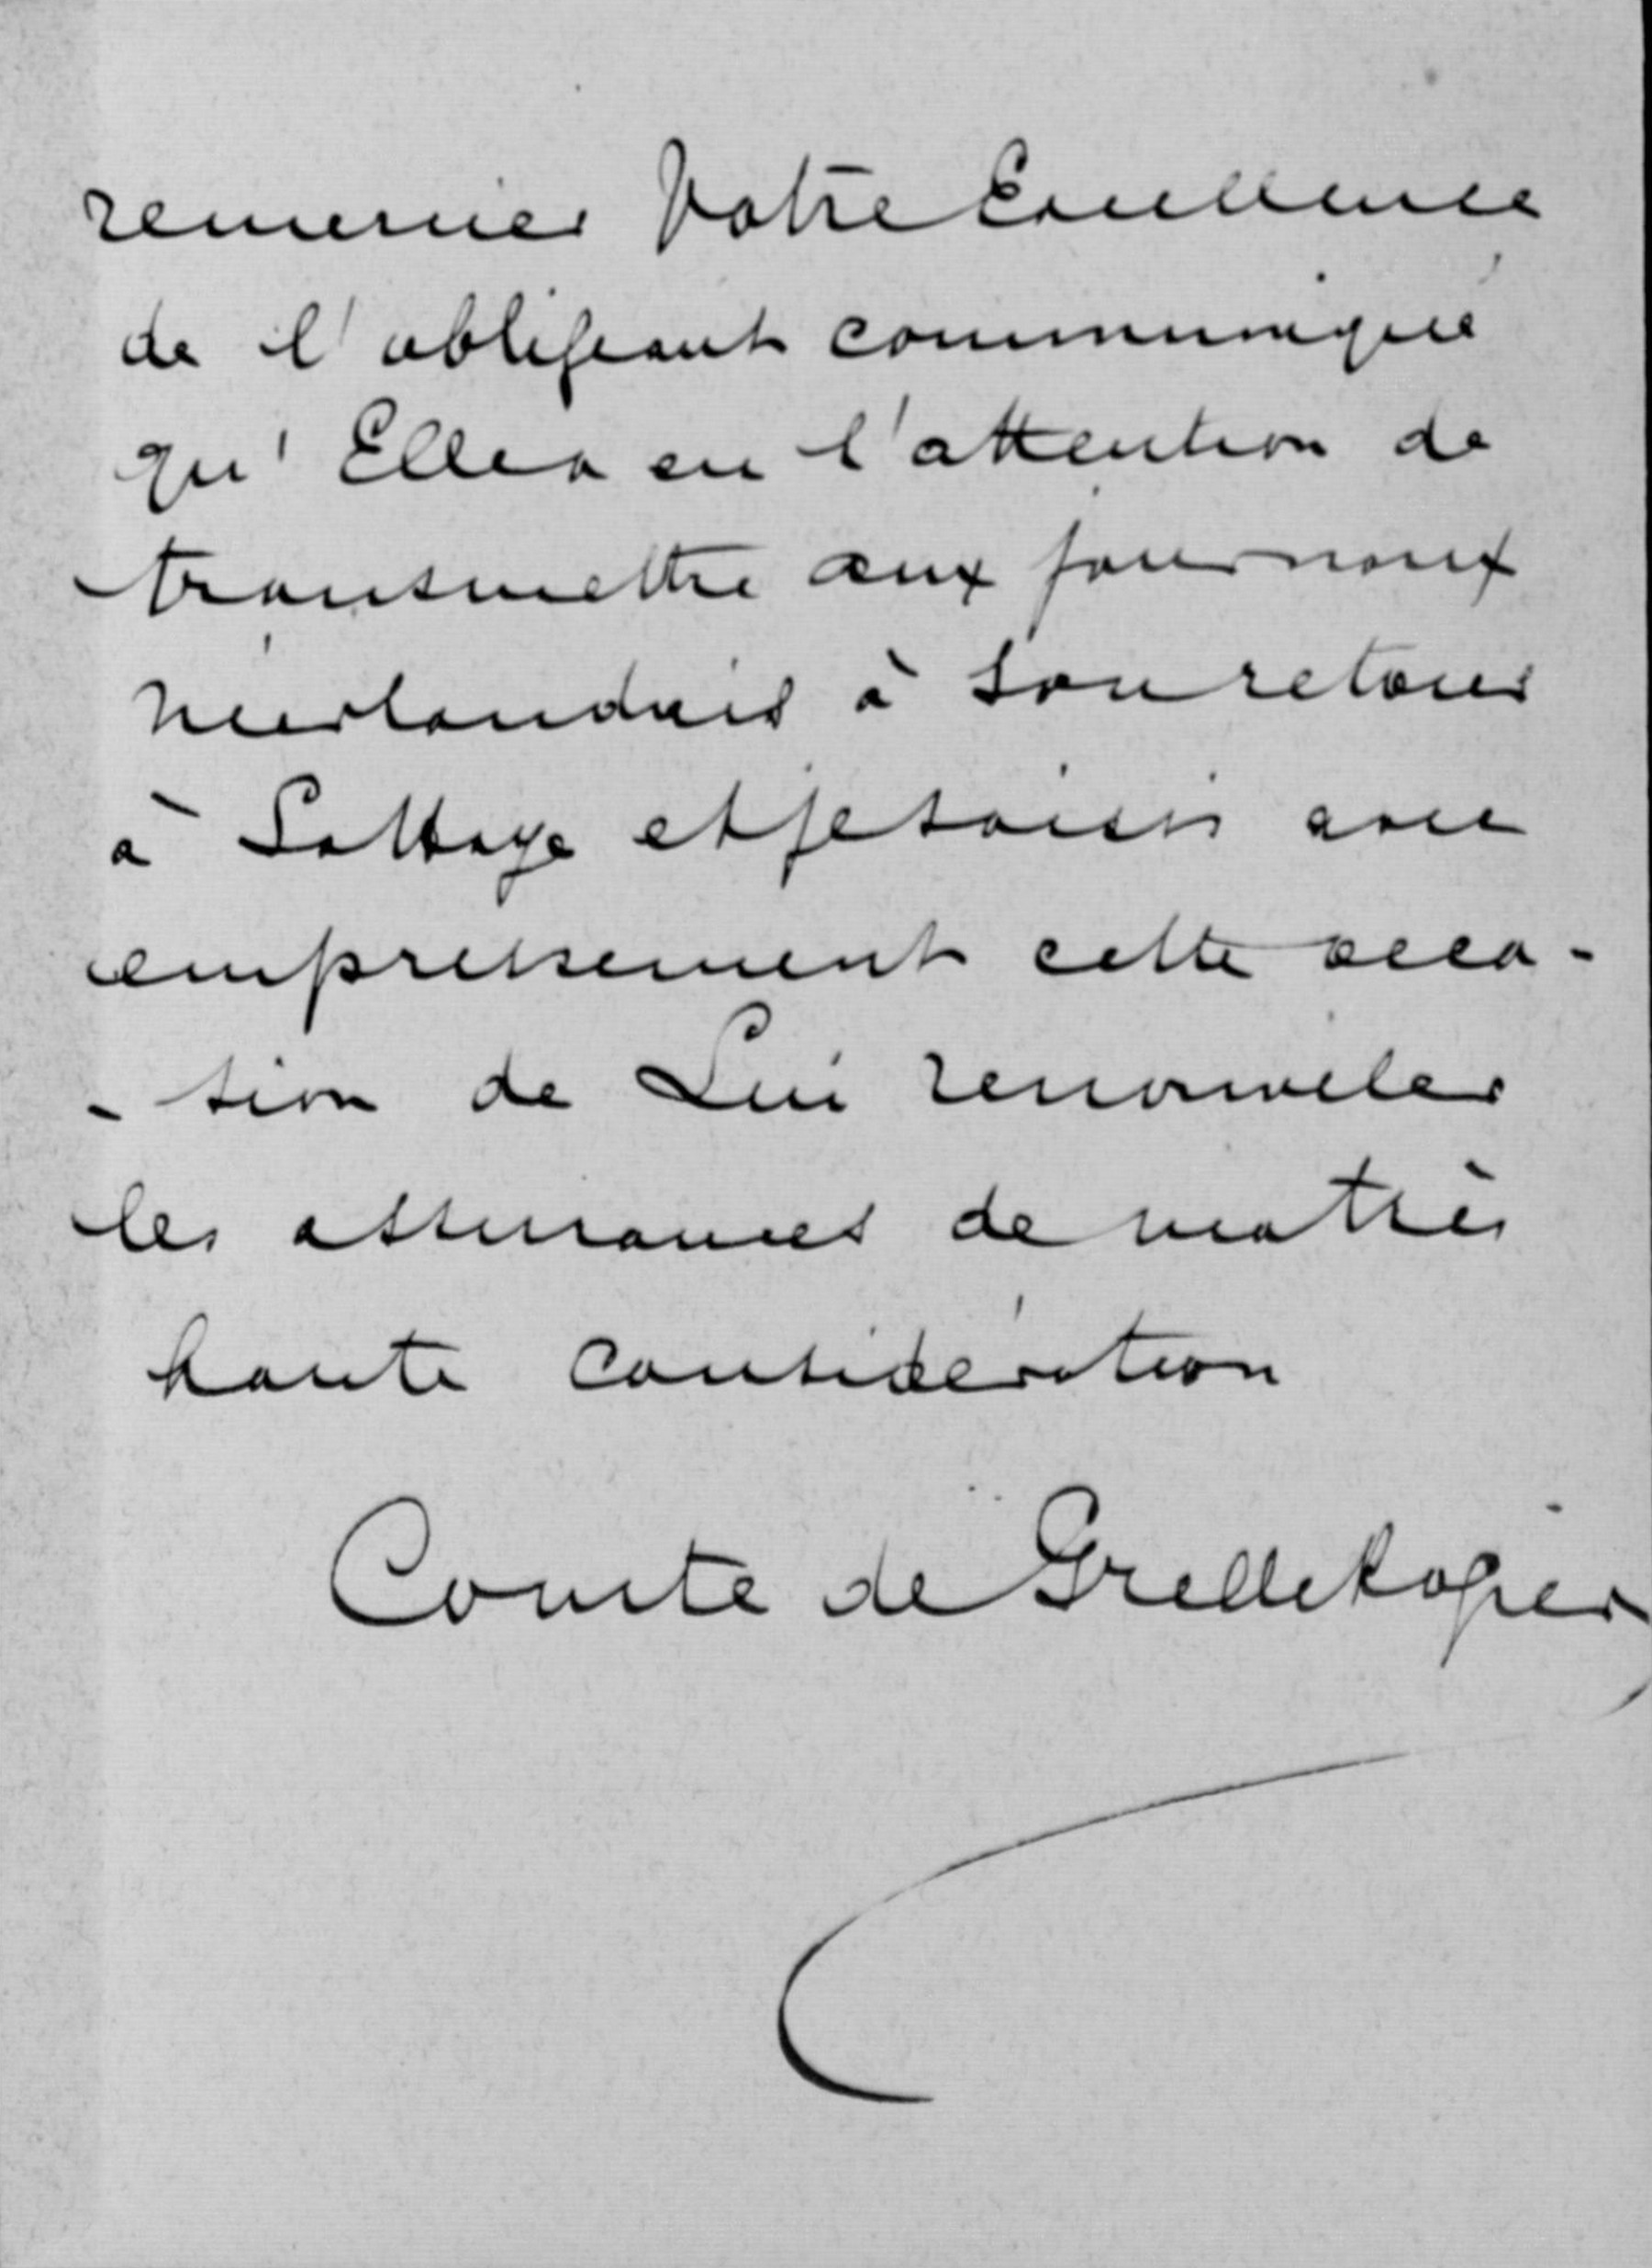 remercier Votre Excellence
de l'obligeant communiqué
qu'Elle a eu l'attention de
transmettre aux journaux
néerlandais à son retour
à La Haye et je saisis avec
empressement cette occa-
-sion de Lui renouveler
les assurances de ma très
haute considération
Comte de Grelle Rogier